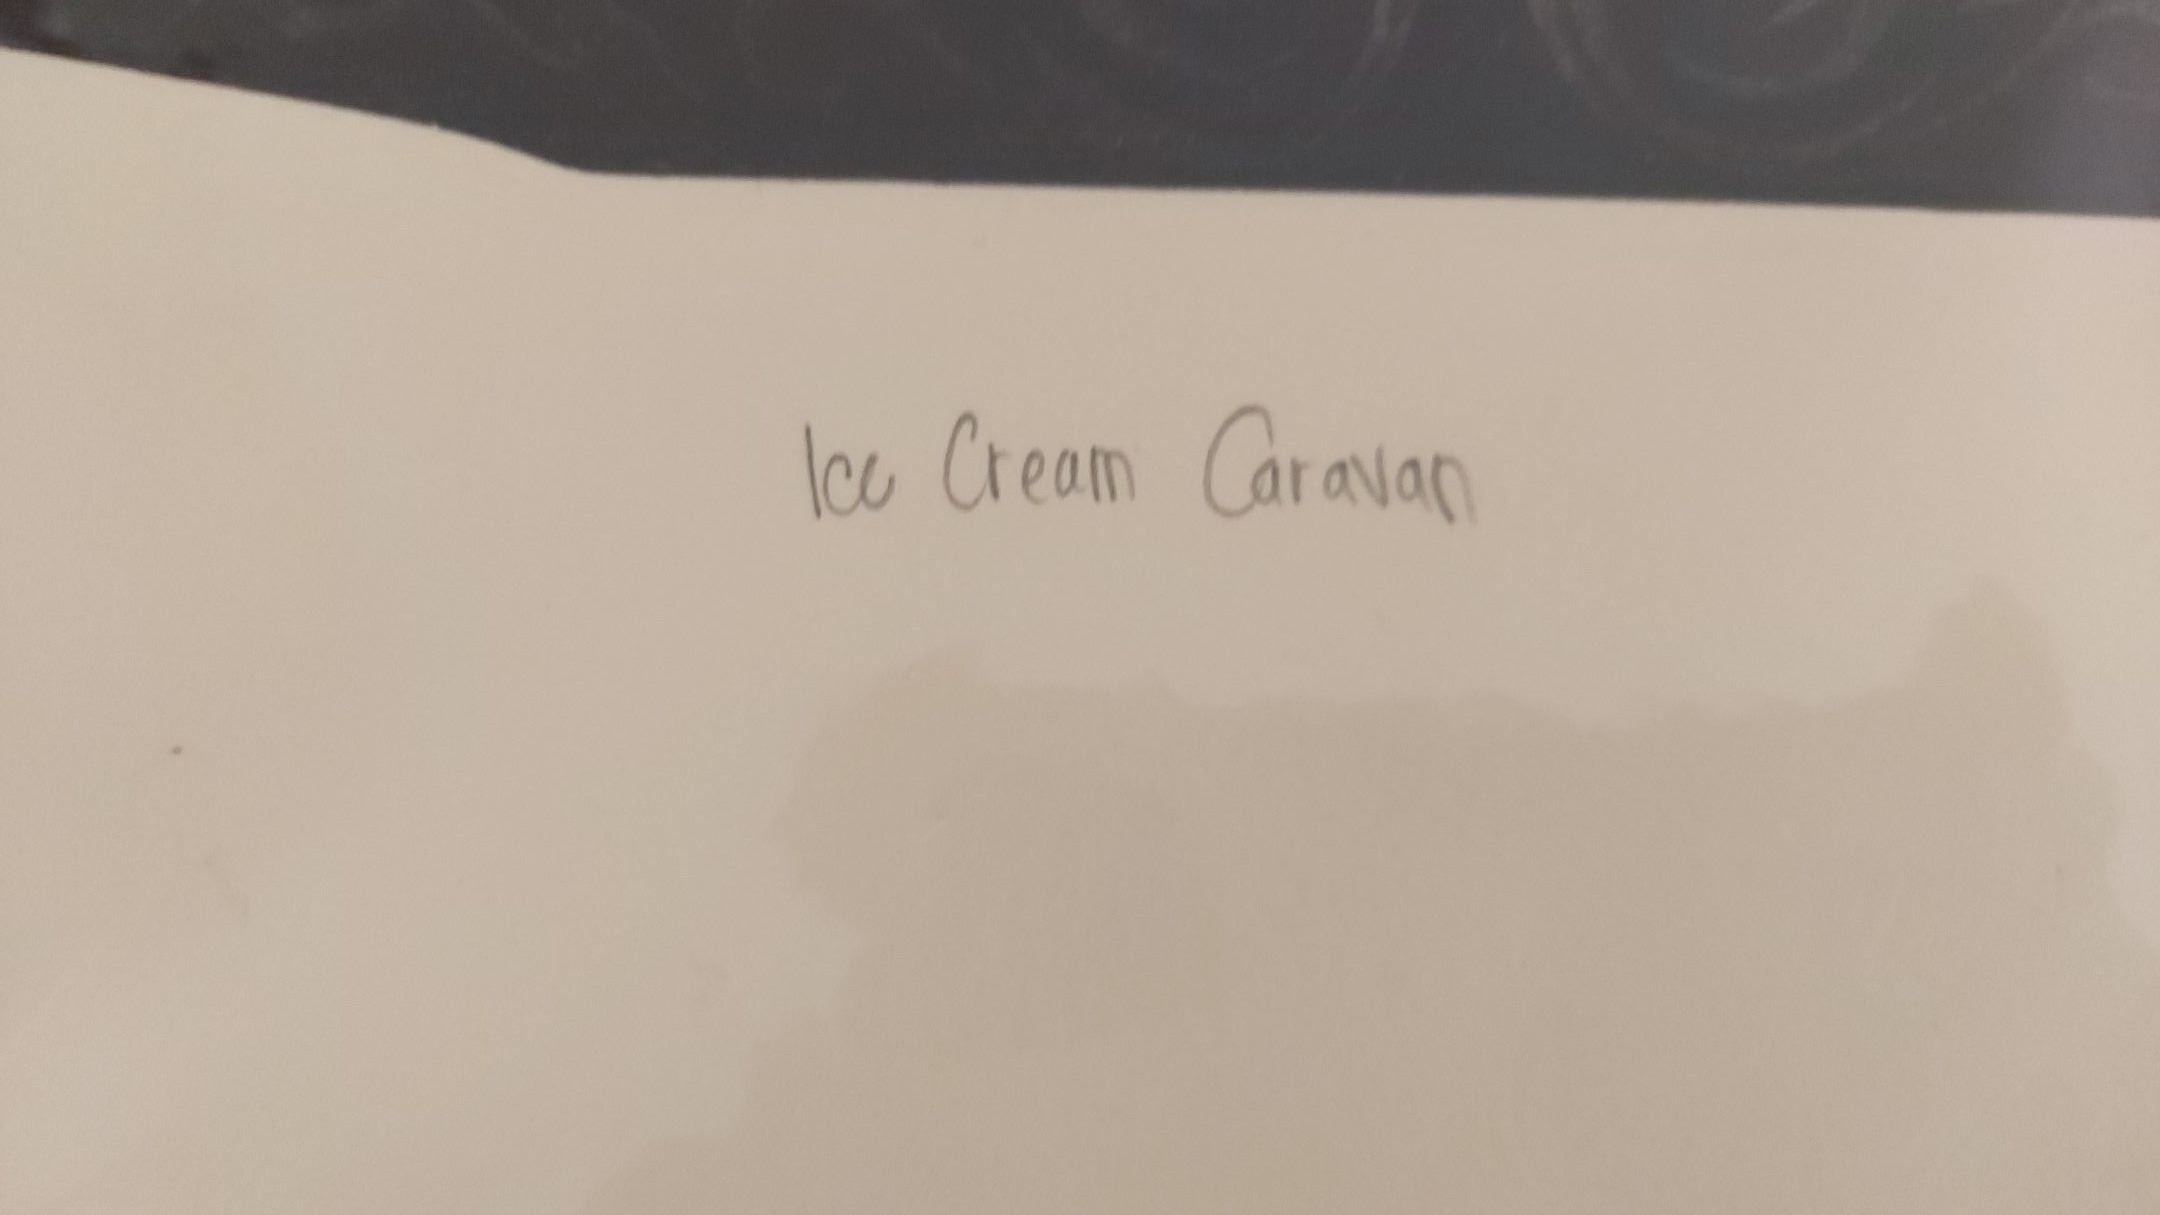 Ice Cream Caravan